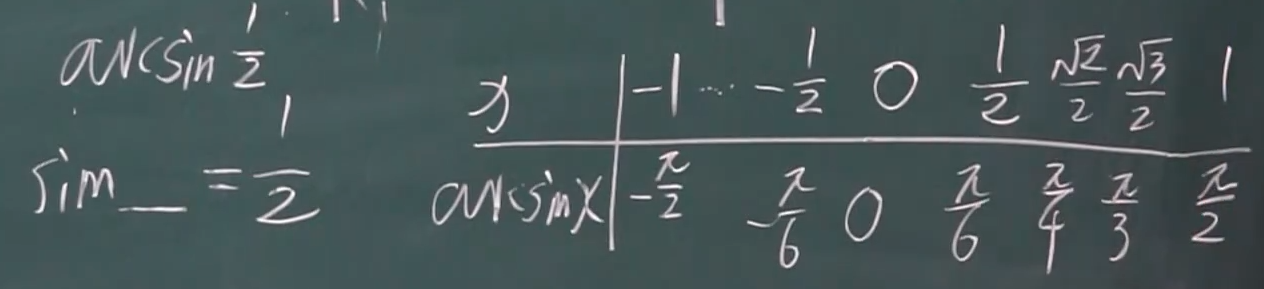 arcsin 1/2
sin __ = 1/2
x | -1 ... -1/2 0 1/2 √2/2 √3/2 1
arcsinx | -π/2 -π/6 0 π/6 π/4 π/3 π/2